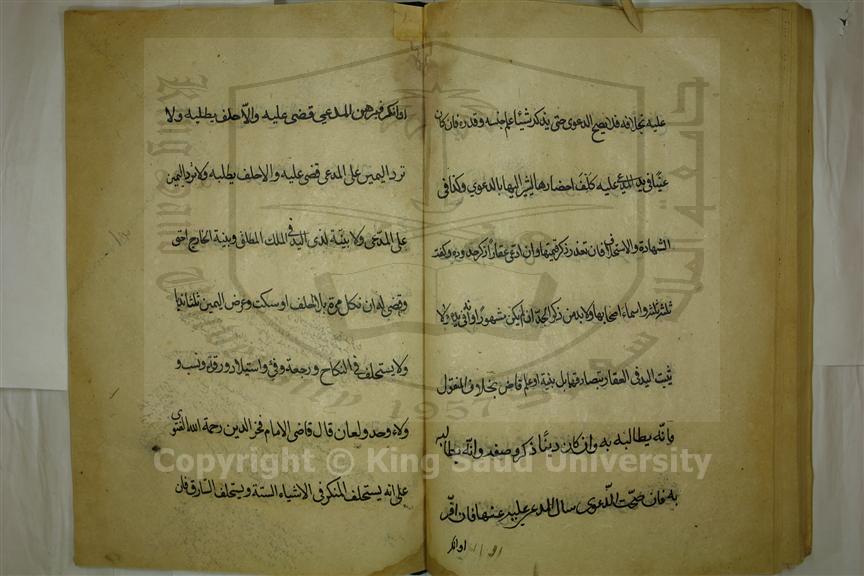 عليه بخلافه فلا تصح الدعوى حتى يذكر شيئا علم جنسه وقدره فان كان
عينا في يد المدعى عليه كلف احضارها ليشير اليها بالدعوى وكذا في
الشهادة والاستحلاف فان تعذر ذكر قيمتها وان ادعى عقارا ذكر حدوده وكفت
ثلثة واسماء اصحابها ولا بد من ذكر الجد ان لم يكن مشهورا وانه في يده ولا
يثبت اليد في العقار بتصادقهما بل ببينة او علم قاض بخلاف المنقول
وانه يطالبه به وان كان دينا ذكر وصفه وانه يطالبه
به فان صحت الدعوى سال المدعى عليه عنها فان اقر
او انكر
او انكر فبرهن المدعي قضى عليه والا حلف بطلبه ولا
ترد اليمين على المدعى قضى عليه والا حلف بطلبه ولا ترد اليمين
على المدعى ولا بينة لذى اليد في الملك المطلق وبينة الخارج احق
وقضى له ان نكل مرة بلا احلف او سكت وعرض اليمين ثلثا ندبا
ولا يستحلف في النكاح ورجعة وفئ واستيلاد ورق ونسب و
ولاء وحد ولعان قال قاضى الامام فخر الدين رحمة الله الفتوى
على انه يستحلف المنكر في الاشياء الستة ويستحلف السارق فان
Copyright © King Saud University
1957